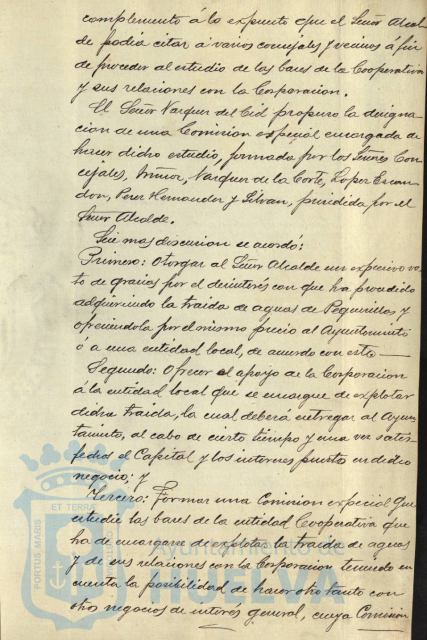 complemento á lo expuesto que el Señor Alcal-
de podia citar á varios concejales y vecinos á fin
de proceder al estudio de las bases de la Cooperativa
y sus relaciones con la Corporacion.
El Señor Vazquez del Cid propuso la designa-
cion de una Comision especial encargada de
hacer dicho estudio, formada por los Señores Con-
cejales, Vazquez de la Corte, Lopez Escan-
don, Perez Hernandez y Galvan, presidida por el
Señor Alcalde.
Sin mas discusion se acordó:
Primero: Otorgar al Señor Alcalde un expresivo vo-
to de gracias por el desinterés con que ha procedido
adquiriendo la traida de aguas de Peguerillas y
ofreciendola por el mismo precio al Ayuntamiento
ó a una entidad local, de acuerdo con este—
Segundo: Ofrecer el apoyo de la Corporacion
á la entidad local que se encargue de explotar
dicha traida, la cual deberá entregar al Ayun-
tamiento, al cabo de cierto tiempo y una vez satis-
fechos el Capital y los intereses puestos en dicho
negocio; y
Tercero: Formar una Comision especial que
estudie las bases de la entidad Cooperativa que
ha de encargarse de explotar la traida de aguas
y de sus relaciones con la Corporacion teniendo en
cuenta la posibilidad de hacer otro tanto con
otros negocios de interés general, cuya Comision
PORTUS MARIS
ET TERRAE
Ayuntamiento de
HUELVA